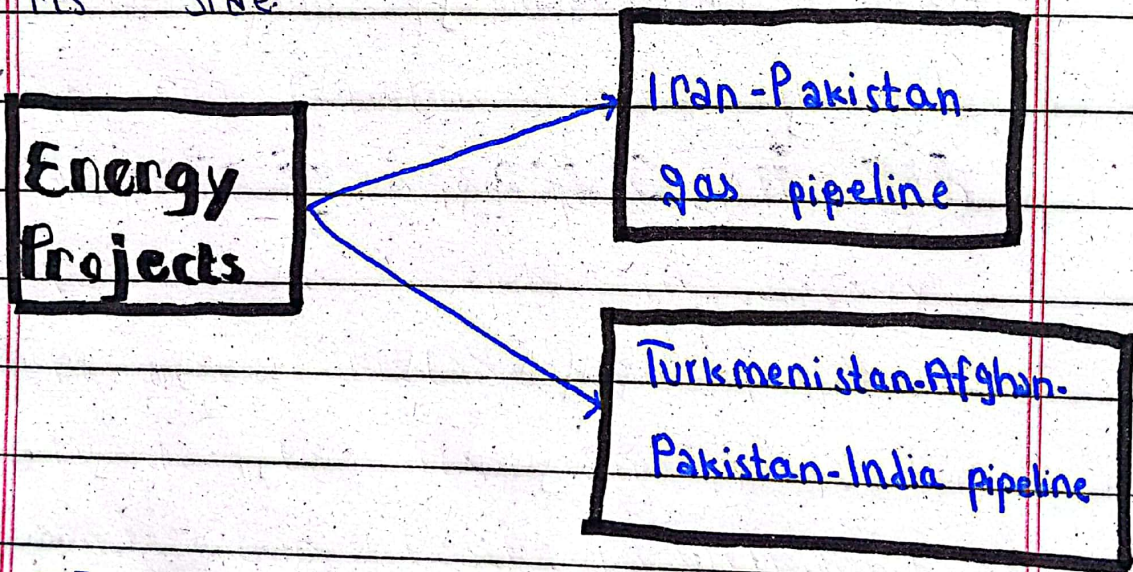 its side
Energy
Projects
Iran-Pakistan
gas pipeline
Turkmenistan-Afghan-
Pakistan-India pipeline